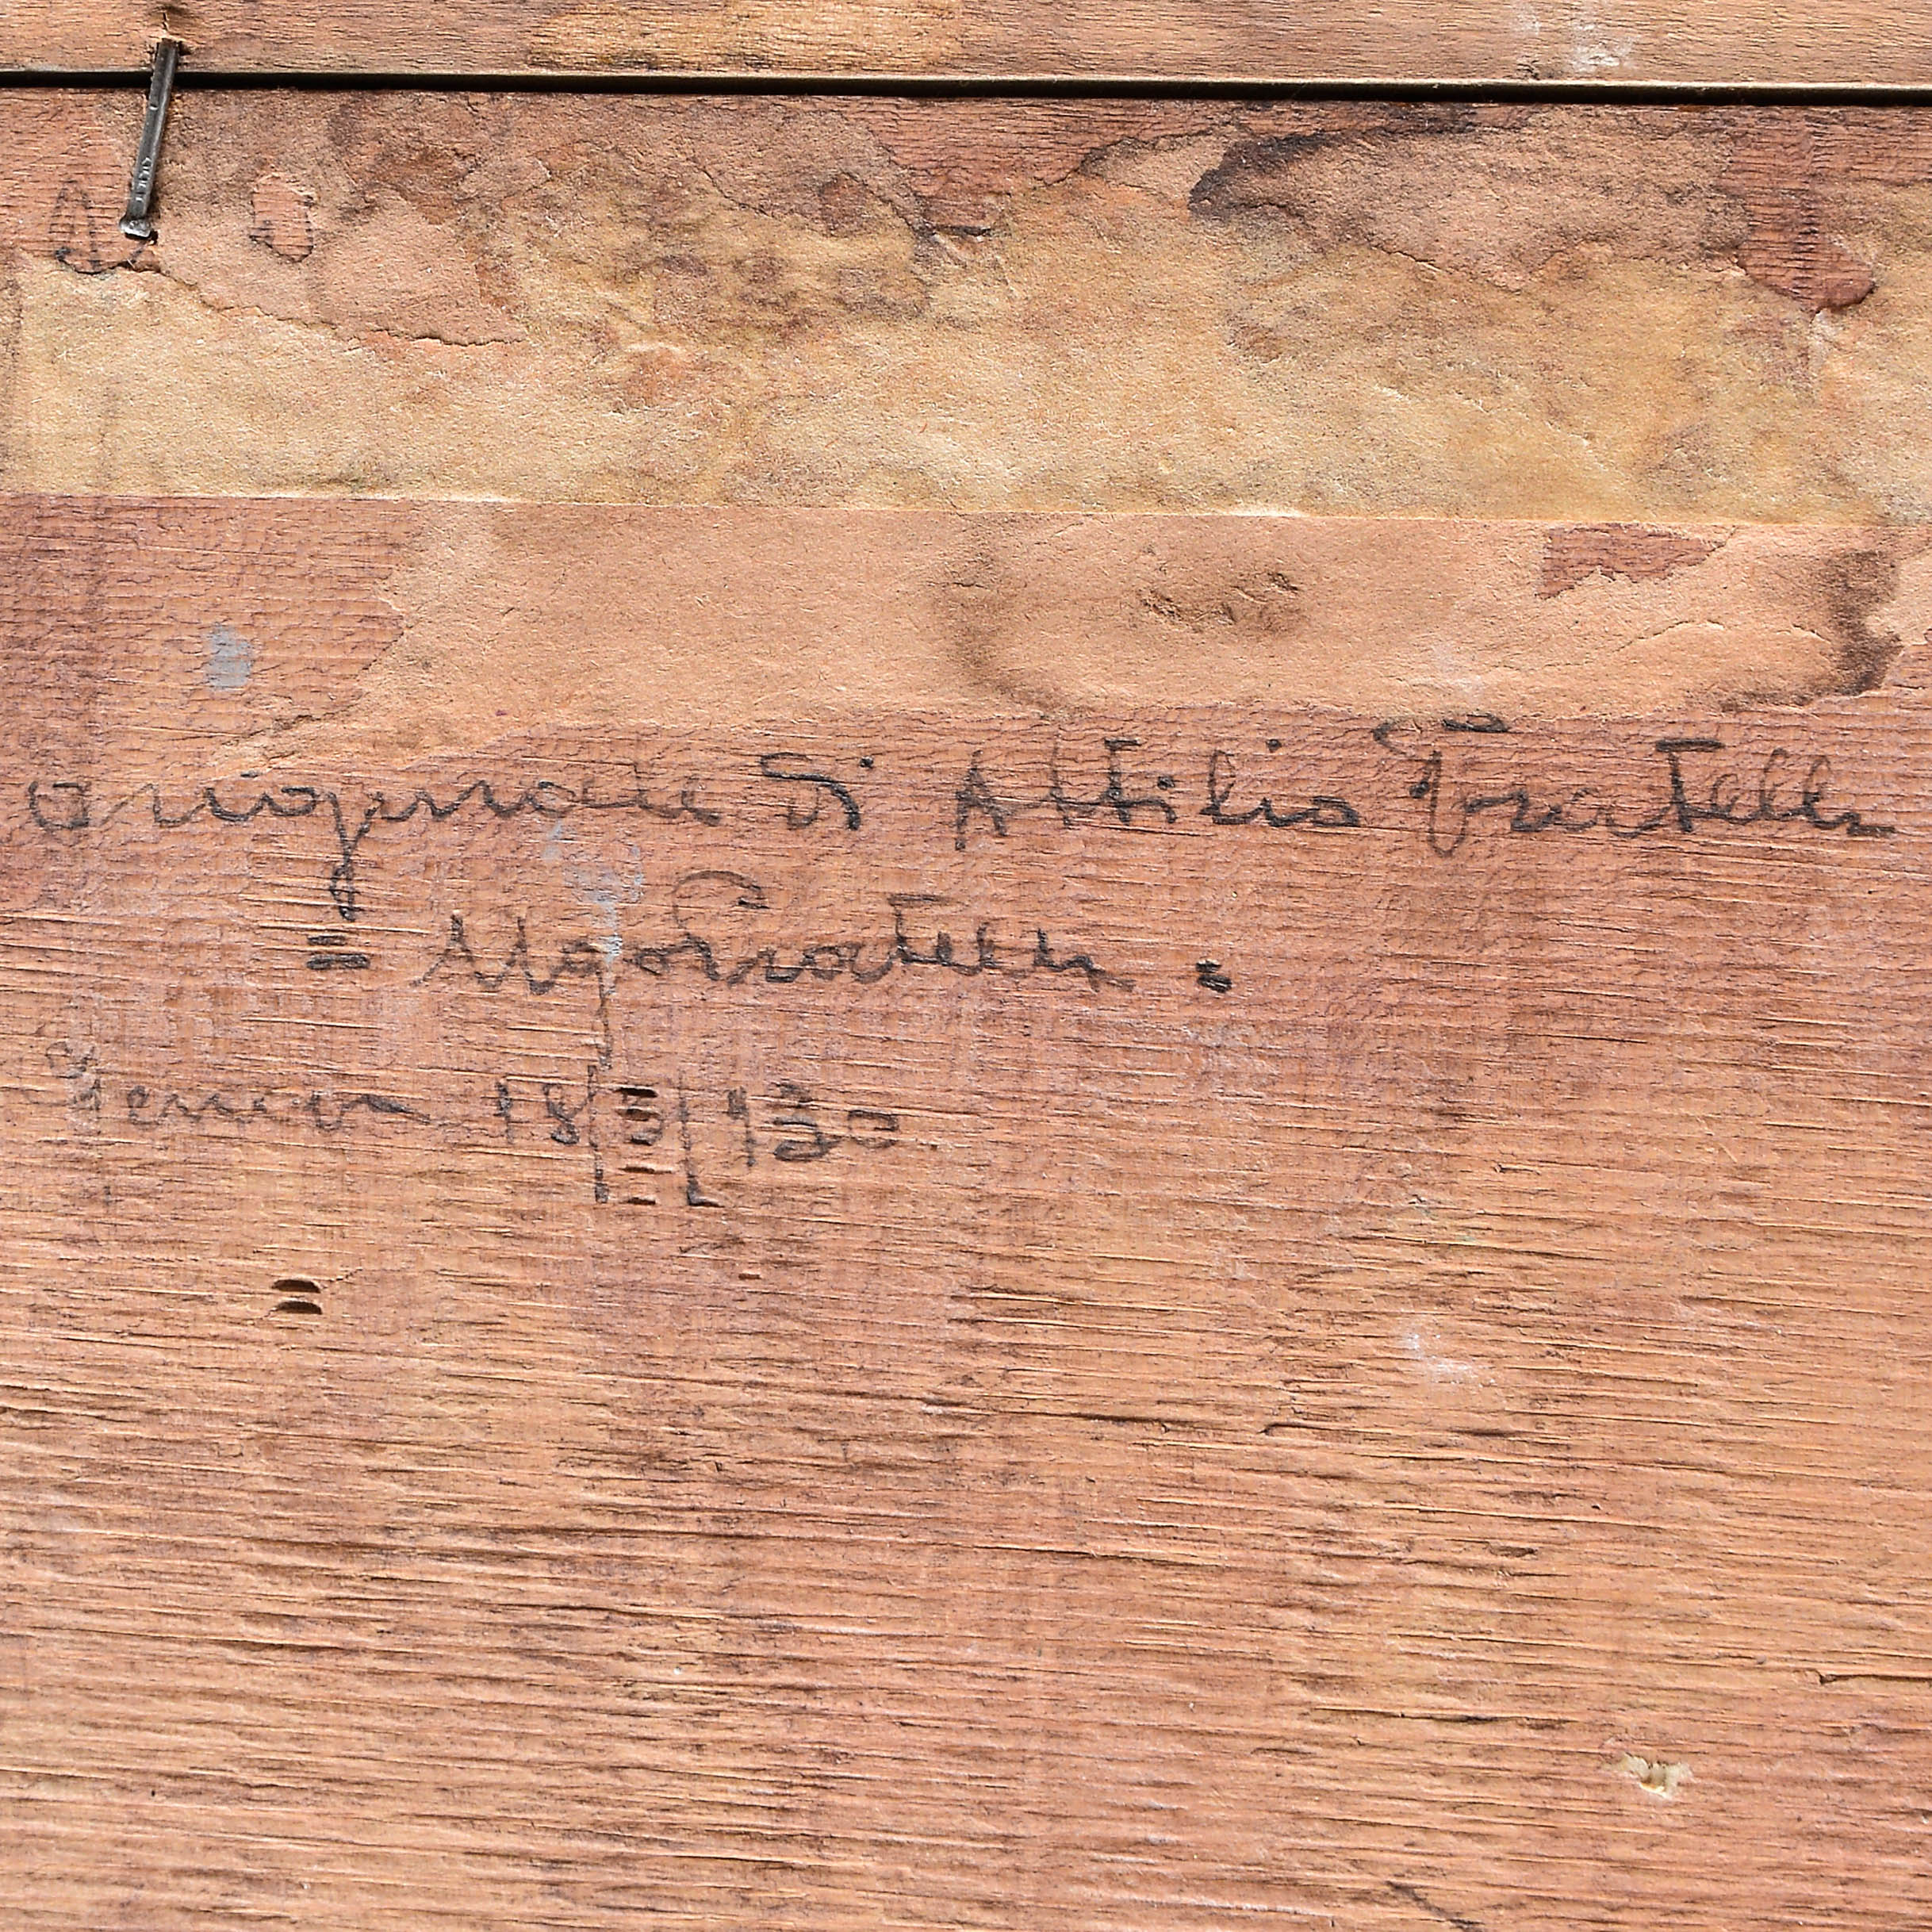 originale di Attilio Pratelli
= Ugo Pratelli =
Genova 18/3/930